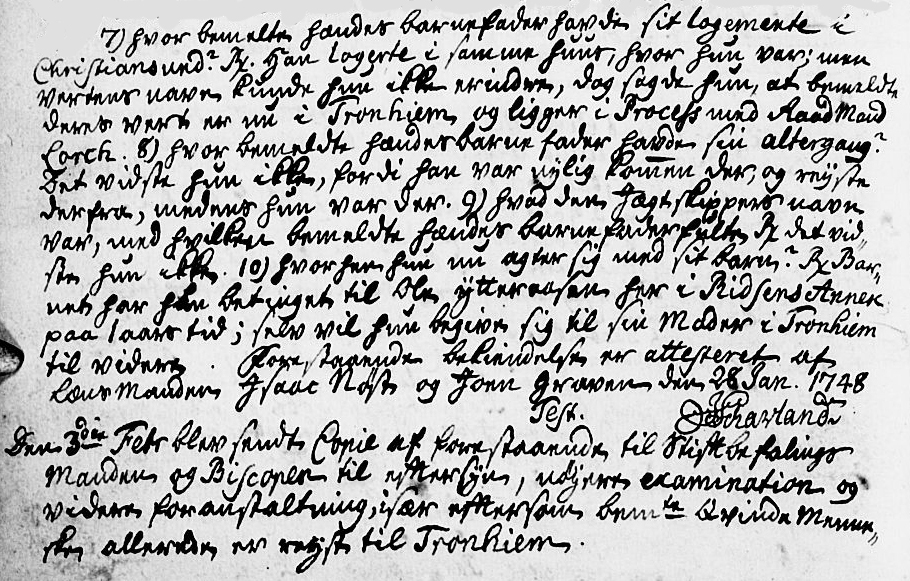 7) hvor bemelte hændes barnefader havde sit logemente i
Christiansund? Rx. Han logerte i samme huus, hvor hun var; men
vertens navn kunde hun ikke erindre, dog sagde hun, at bemeldte
deres vert er nu i Tronhiem og ligger i Process med Raad Mand
Lorch. 8) hvor bemeldte hændes barne fader havde sin altergang?
Det vidste hun ikke, fordi han var nylig kom̄en der, og reyste
derfra, medens hun var der. 9) hvad den Jægt skippers navn
var, med hvilken bemeldte hændes barnefader fulte Rx det vid„
ste hun ikke. 10) hvorhen hun nu agter sig med sit barn? Rx Bar„
net har hun betinget til Ole ytterøsen her i Ridsens Annex
paa 1 aars tid; selv vil hun begive sig til sin Moder i Tronhiem
til videre. Forestaaende bekiendelse er attesteret af
Lænsmanden Isaac Nøst og Joen Graven den 28 Jan. 1748
Test. Scharland
Den 3die Febr blev sendt Copie af forestaaende til Stiftbefalings
Manden og Biscopen til eftersyn, nøyere examination og
videre foranstaltning, især eftersom bemte Qvinde Menne„
ske allerede er reyst til Tronhiem.